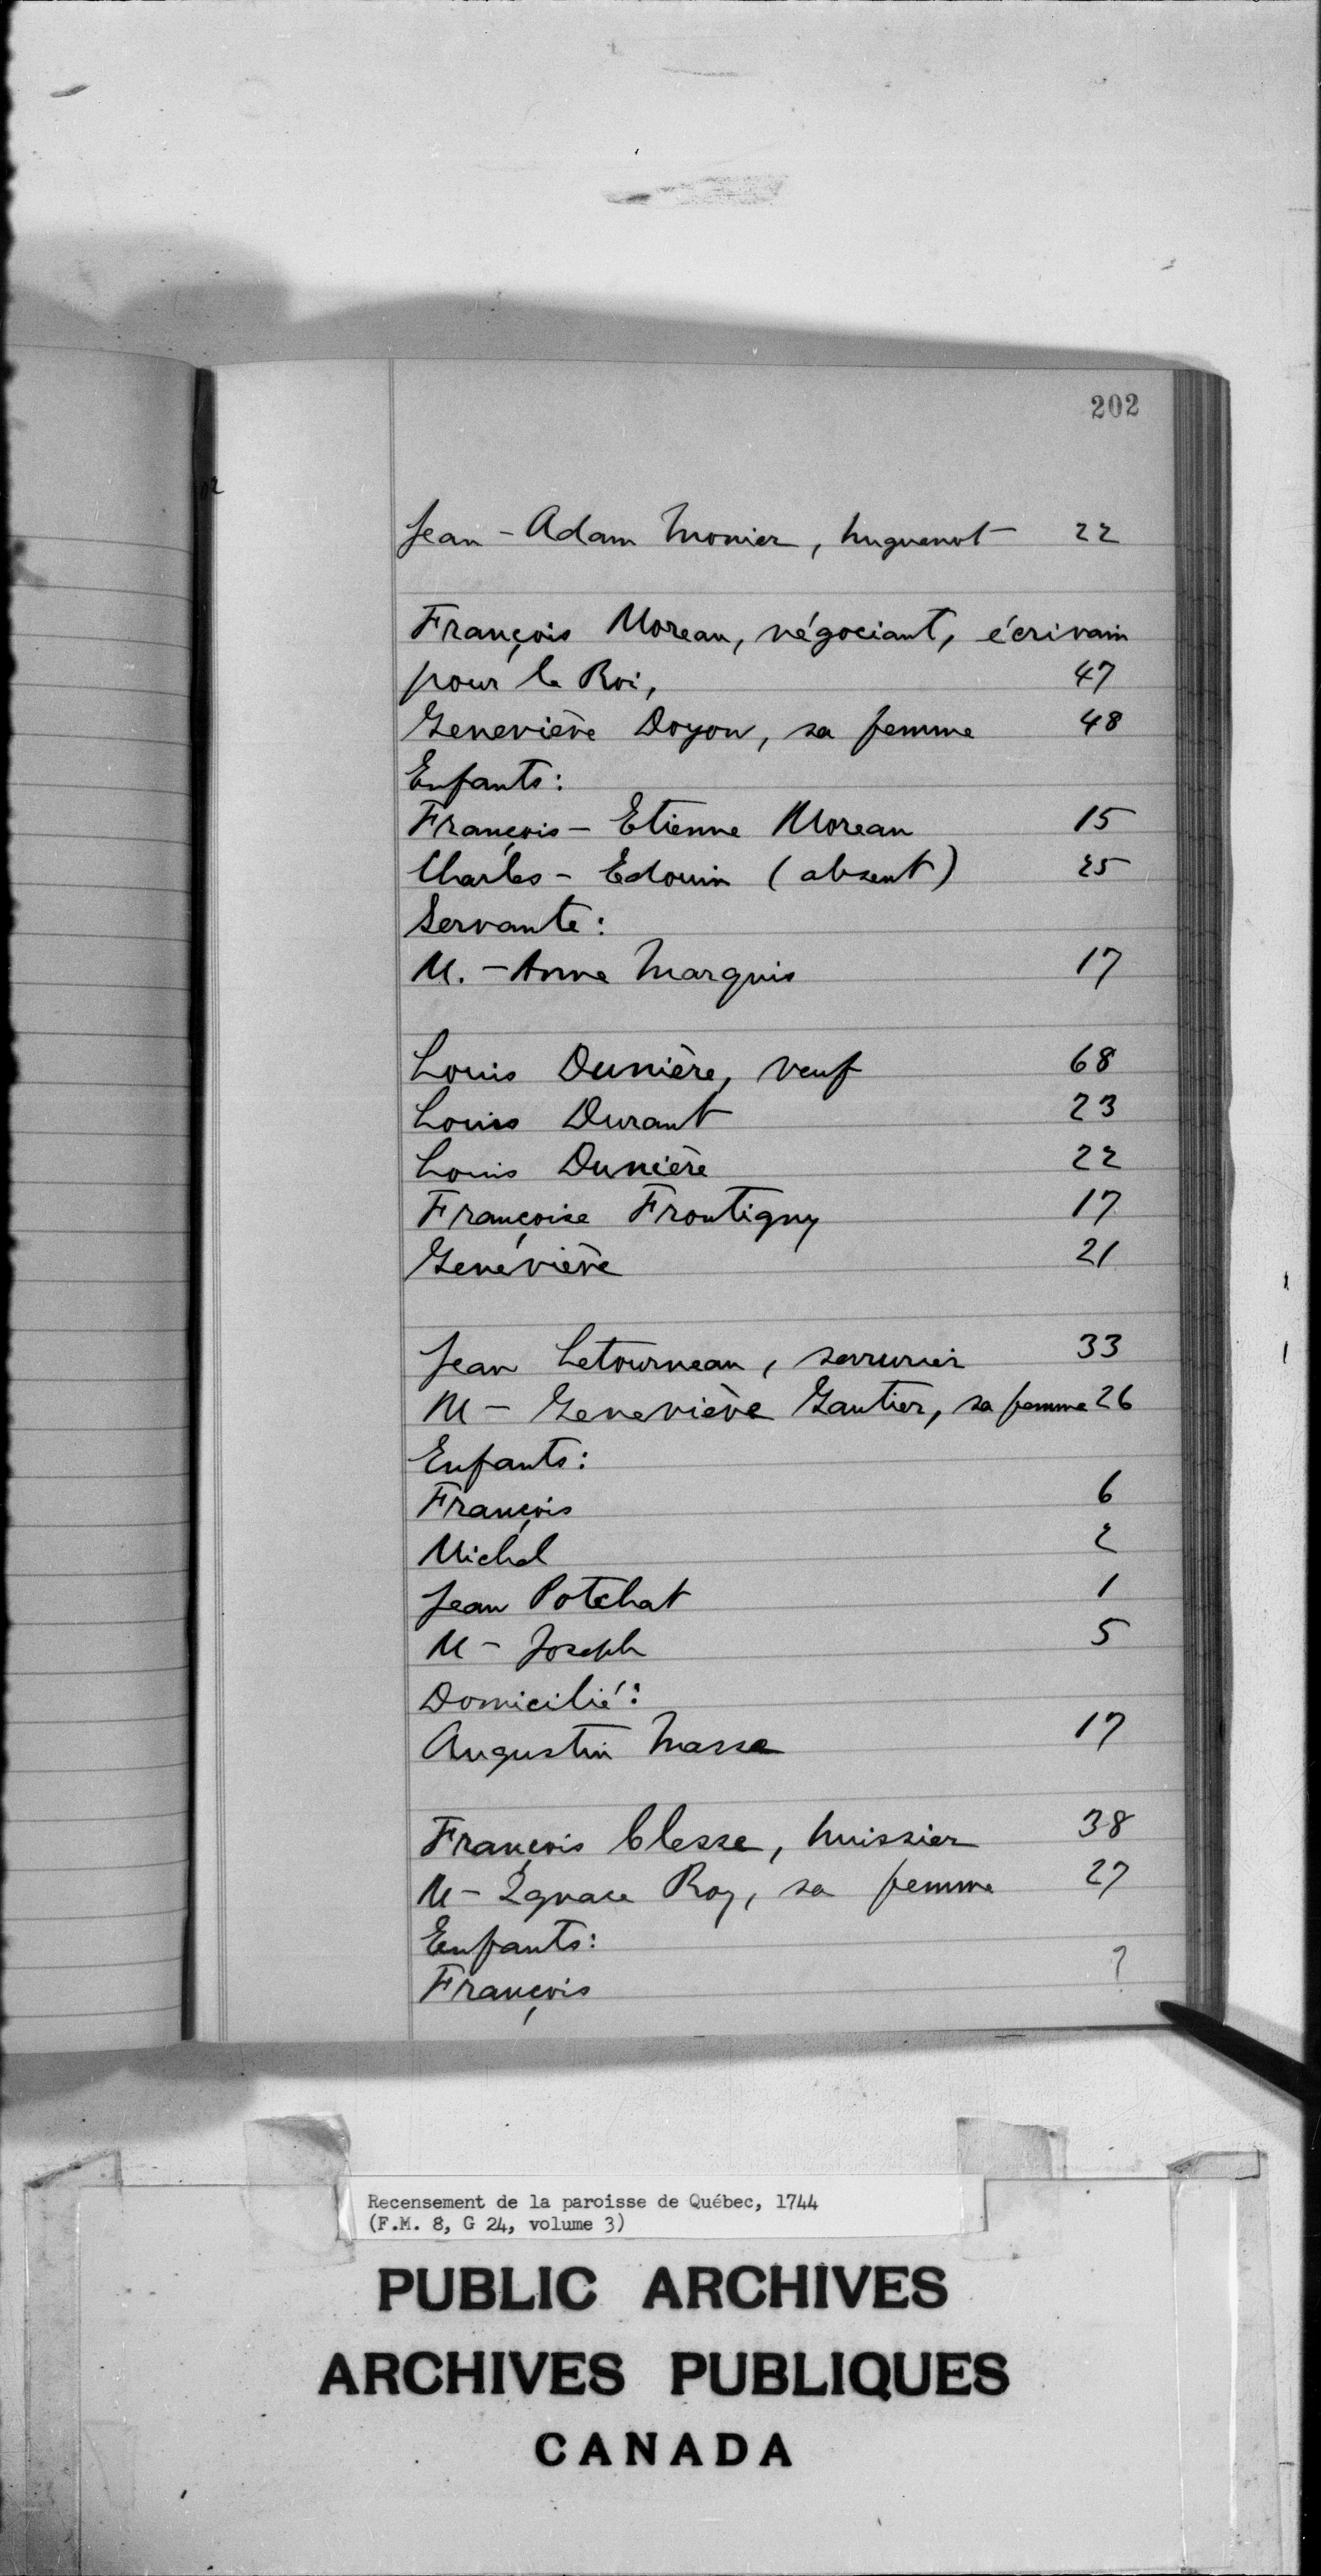 202
Jean-Adam Monier, huguenot 22
François Moreau, négociant, écrivain
pour le Roi, 47
Geneviève Doyon, sa femme 48
Enfants:
François-Etienne Moreau 15
Charles-Edouin (absent) 25
Servante:
M.-Anne Marquis 17
Louis Dunière, veuf 68
Louis Durant 23
Louis Dunière 22
Françoise Frontigny 17
Geneviève 21
Jean Letourneau, serrurier 33
M-Geneviève Gautier, sa femme 26
Enfants:
François 6
Michel 2
Jean Potchat 1
M-Joseph 5
Domicilié:
Augustin Masse 17
François Clesse, huissier 38
M-Ignace Roy, sa femme 27
Enfants:
François ?
Recensement de la paroisse de Québec, 1744
(F.M. 8, G 24, volume 3)
PUBLIC ARCHIVES
ARCHIVES PUBLIQUES
CANADA